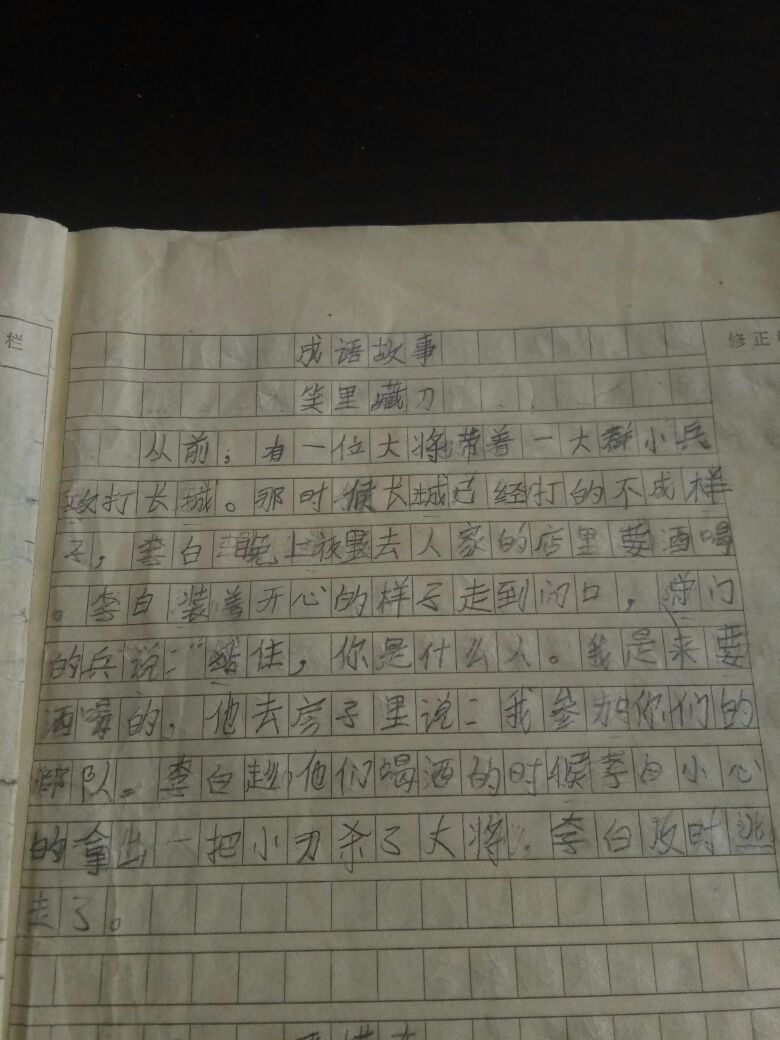 栏
修正
成语故事
笑里藏刀
从前，有一位大将带着一大群小兵
攻打长城。那时候长城已经打的不成样
子，李白晚上夜里去人家的店里要酒喝
。李白装着开心的样子走到门口，守门
的兵说："站住，你是什么人。我是来要
酒喝的，他去房子里说：我参加你们的
部队。李白趁他们喝酒的时候李白小心
的拿出一把小刀杀了大将，李白及时逃
走了。